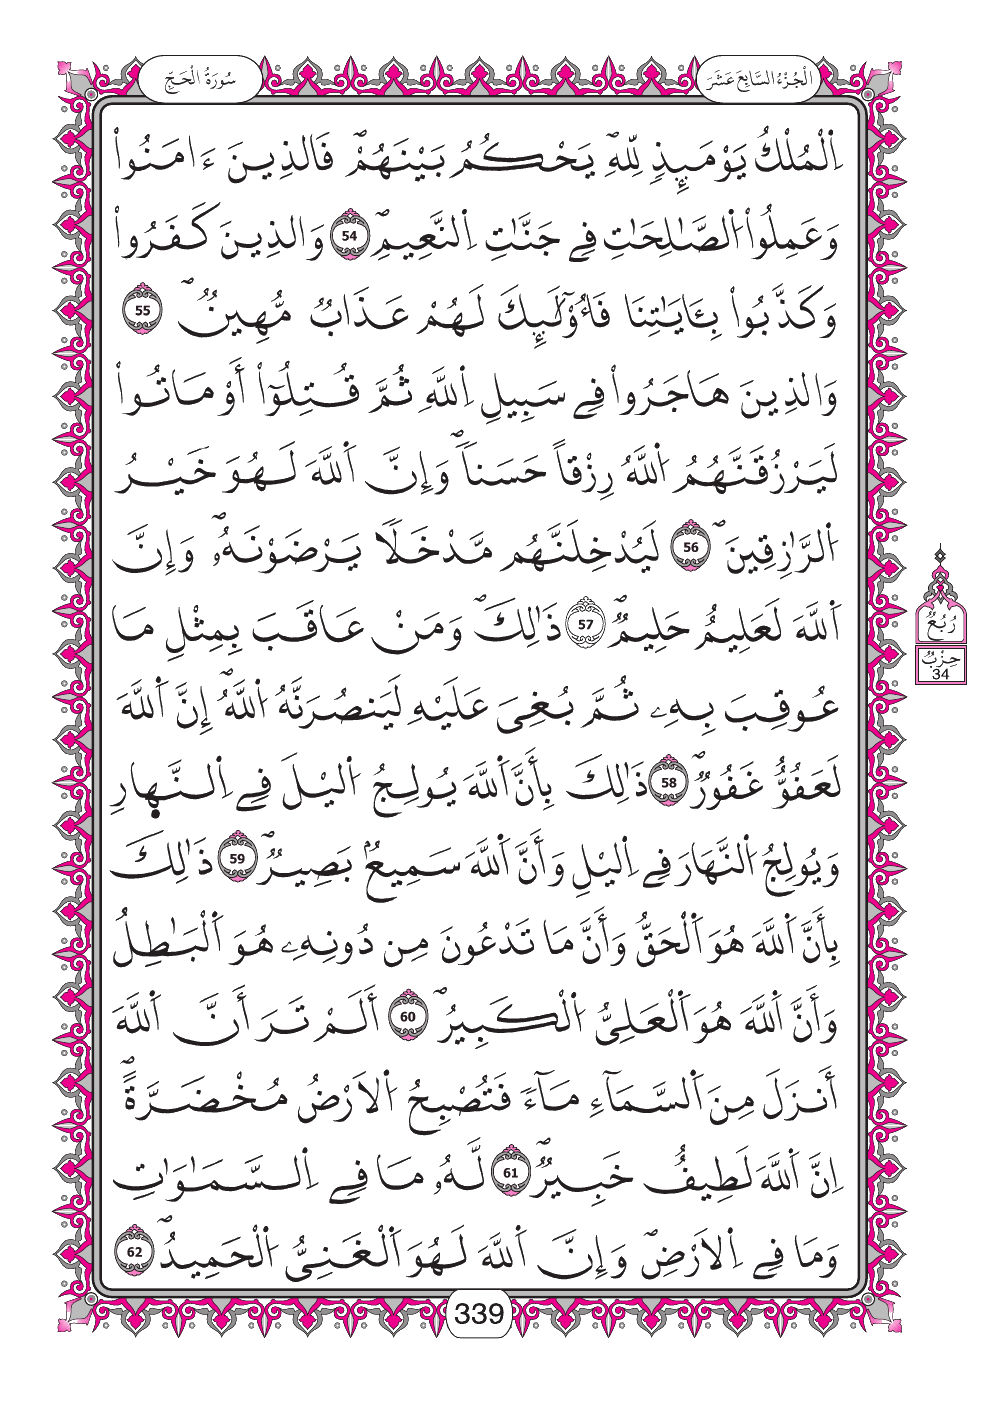 سُورَةُ الْحَجِّ
الْجُزْءُ السَّابِعَ عَشَرَ
اِ۬لْمُلْكُ يَوْمَئِذٖ لِّلهِۖ يَحْكُمُ بَيْنَهُمْۖ فَالذِينَ ءَامَنُواْ
وَعَمِلُواْ اُ۬لصَّٰلِحَٰتِ فِے جَنَّٰتِ اِ۬لنَّعِيمِۖ 54 وَالذِينَ كَفَرُواْ
وَكَذَّبُواْ بِـَٔايَٰتِنَا فَأُوْلَٰٓئِكَ لَهُمْ عَذَابٞ مُّهِينٞۖ 55
وَالذِينَ هَاجَرُواْ فِے سَبِيلِ اِ۬للَّهِ ثُمَّ قُتِلُوٓاْ أَوْ مَاتُواْ
لَيَرْزُقَنَّهُمُ اُ۬للَّهُ رِزْقاً حَسَناٗۖ وَإِنَّ اَ۬للَّهَ لَهُوَ خَيْرُ
اُ۬لرَّٰزِقِينَۖ 56 لَيُدْخِلَنَّهُم مَّدْخَلاٗ يَرْضَوْنَهُۥۖ وَإِنَّ
اَ۬للَّهَ لَعَلِيمٌ حَلِيمٞۖ 57 ذَٰلِكَۖ وَمَنْ عَاقَبَ بِمِثْلِ مَا
عُوقِبَ بِهِۦ ثُمَّ بُغِيَ عَلَيْهِ لَيَنصُرَنَّهُ اُ۬للَّهُۖ إِنَّ اَ۬للَّهَ
لَعَفُوٌّ غَفُورٞۖ 58 ذَٰلِكَ بِأَنَّ اَ۬للَّهَ يُولِجُ اُ۬ليْلَ فِے اِ۬لنَّه۪ارِ
وَيُولِجُ اُ۬لنَّهَارَ فِے اِ۬ليْلِ وَأَنَّ اَ۬للَّهَ سَمِيعُۢ بَصِيرٞۖ 59 ذَٰلِكَ
بِأَنَّ اَ۬للَّهَ هُوَ اَ۬لْحَقُّ وَأَنَّ مَا تَدْعُونَ مِن دُونِهِۦ هُوَ اَ۬لْبَٰطِلُ
وَأَنَّ اَ۬للَّهَ هُوَ اَ۬لْعَلِيُّ اُ۬لْكَبِيرُۖ 60 أَلَمْ تَرَ أَنَّ اَ۬للَّهَ
أَنزَلَ مِنَ اَ۬لسَّمَآءِ مَآءٗ فَتُصْبِحُ اُ۬لَارْضُ مُخْضَرَّةًۖ
اِنَّ اَ۬للَّهَ لَطِيفٌ خَبِيرٞۖ 61 لَّهُۥ مَا فِے اِ۬لسَّمَٰوَٰتِ
وَمَا فِے اِ۬لَارْضِۖ وَإِنَّ اَ۬للَّهَ لَهُوَ اَ۬لْغَنِيُّ اُ۬لْحَمِيدُۖ 62
رُبُعُ
حِزْبُ
34
339